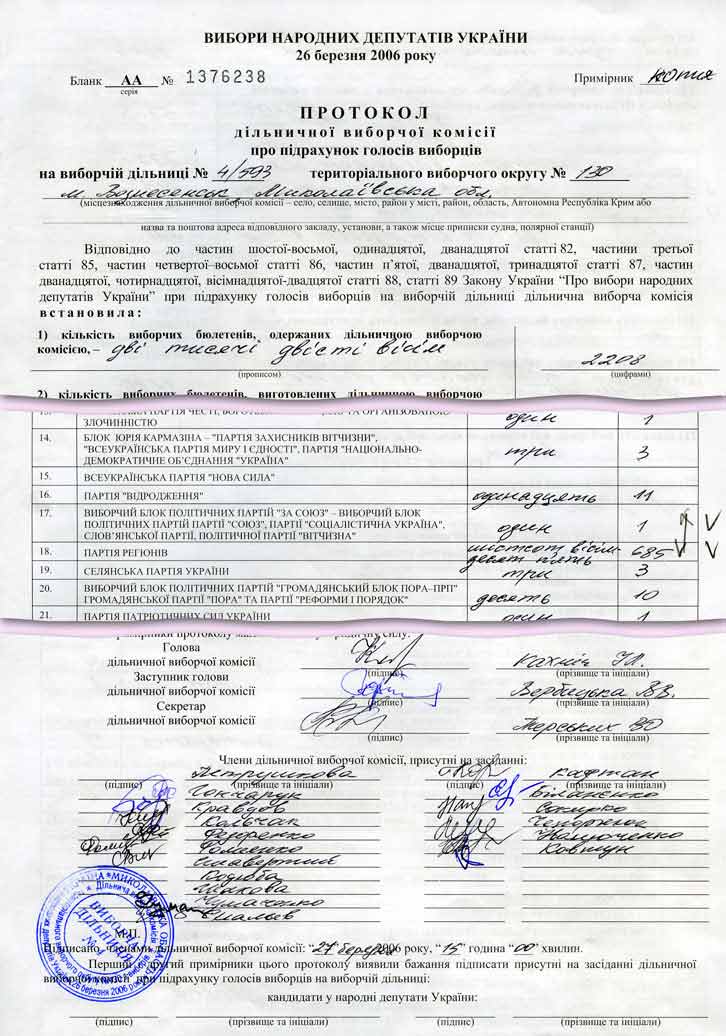 ВИБОРИ НАРОДНИХ ДЕПУТАТІВ УКРАЇНИ
26 березня 2006 року
Бланк АА № 1376238 Примірник копия
серія
ПРОТОКОЛ
дільничної виборчої комісії
про підрахунок голосів виборців
на виборчій дільниці № 4/593 територіального виборчого округу № 130
м. Вознесенськ Миколаївська обл.
(місцезнаходження дільничної виборчої комісії – село, селище, місто, район у місті, район, область, Автономна Республіка Крим або
назва та поштова адреса відповідного закладу, установи, а також місце приписки судна, полярної станції)
Відповідно до частин шостої-восьмої, одинадцятої, дванадцятої статті 82, частини третьої
статті 85, частин четвертої–восьмої статті 86, частин п’ятої, дванадцятої, тринадцятої статті 87, частин
дванадцятої, чотирнадцятої, вісімнадцятої-двадцятої статті 88, статті 89 Закону України “Про вибори народних
депутатів України” при підрахунку голосів виборців на виборчій дільниці дільнична виборча комісія
встановила:
1) кількість виборчих бюлетенів, одержаних дільничною виборчою
комісією, – дві тисячі двісті вісім 2208
(прописом) (цифрами)
2) кількість виборчих бюлетенів, виготовлених дільничною виборчою
ЗЛОЧИННІСТЮ один 1
14. БЛОК ЮРІЯ КАРМАЗІНА – "ПАРТІЯ ЗАХИСНИКІВ ВІТЧИЗНИ",
"ВСЕУКРАЇНСЬКА ПАРТІЯ МИРУ І ЄДНОСТІ", ПАРТІЯ "НАЦІОНАЛЬНО-
ДЕМОКРАТИЧНЕ ОБ`ЄДНАННЯ "УКРАЇНА" три 3
15. ВСЕУКРАЇНСЬКА ПАРТІЯ "НОВА СИЛА"
16. ПАРТІЯ "ВІДРОДЖЕННЯ" одинадцять 11
17. ВИБОРЧИЙ БЛОК ПОЛІТИЧНИХ ПАРТІЙ "ЗА СОЮЗ" – ВИБОРЧИЙ БЛОК
ПОЛІТИЧНИХ ПАРТІЙ ПАРТІЇ "СОЮЗ", ПАРТІЇ "СОЦІАЛІСТИЧНА УКРАЇНА",
СЛОВ’ЯНСЬКОЇ ПАРТІЇ, ПОЛІТИЧНОЇ ПАРТІЇ "ВІТЧИЗНА" один 1
18. ПАРТІЯ РЕГІОНІВ шистсот вісім- 685
десят п'ять
19. СЕЛЯНСЬКА ПАРТІЯ УКРАЇНИ три 3
20. ВИБОРЧИЙ БЛОК ПОЛІТИЧНИХ ПАРТІЙ "ГРОМАДЯНСЬКИЙ БЛОК ПОРА–ПРП"
ГРОМАДЯНСЬКОЇ ПАРТІЇ "ПОРА" ТА ПАРТІЇ "РЕФОРМИ І ПОРЯДОК" десять 10
21. ПАРТІЯ ПАТРІОТИЧНИХ СИЛ УКРАЇНИ один 1
Голова
дільничної виборчої комісії
(підпис) (прізвище та ініціали)
Заступник голови
дільничної виборчої комісії Вербицька В.В.
(підпис) (прізвище та ініціали)
Секретар
дільничної виборчої комісії
(підпис) (прізвище та ініціали)
Члени дільничної виборчої комісії, присутні на засіданні:
Петрушкова Кафтан
(підпис) (прізвище та ініціали) (підпис) (прізвище та ініціали)
Гончарук
Кравцов
Кольчак
Федоренко
Фоменко Ковтун
М.П.
Підписано членами дільничної виборчої комісії: “27 березня 2006 року, “15” година “00” хвилин.
Перший і другий примірники цього протоколу виявили бажання підписати присутні на засіданні дільничної
виборчої комісії при підрахунку голосів виборців на виборчій дільниці:
кандидати у народні депутати України:
(підпис) (прізвище та ініціали) (підпис) (прізвище та ініціали)